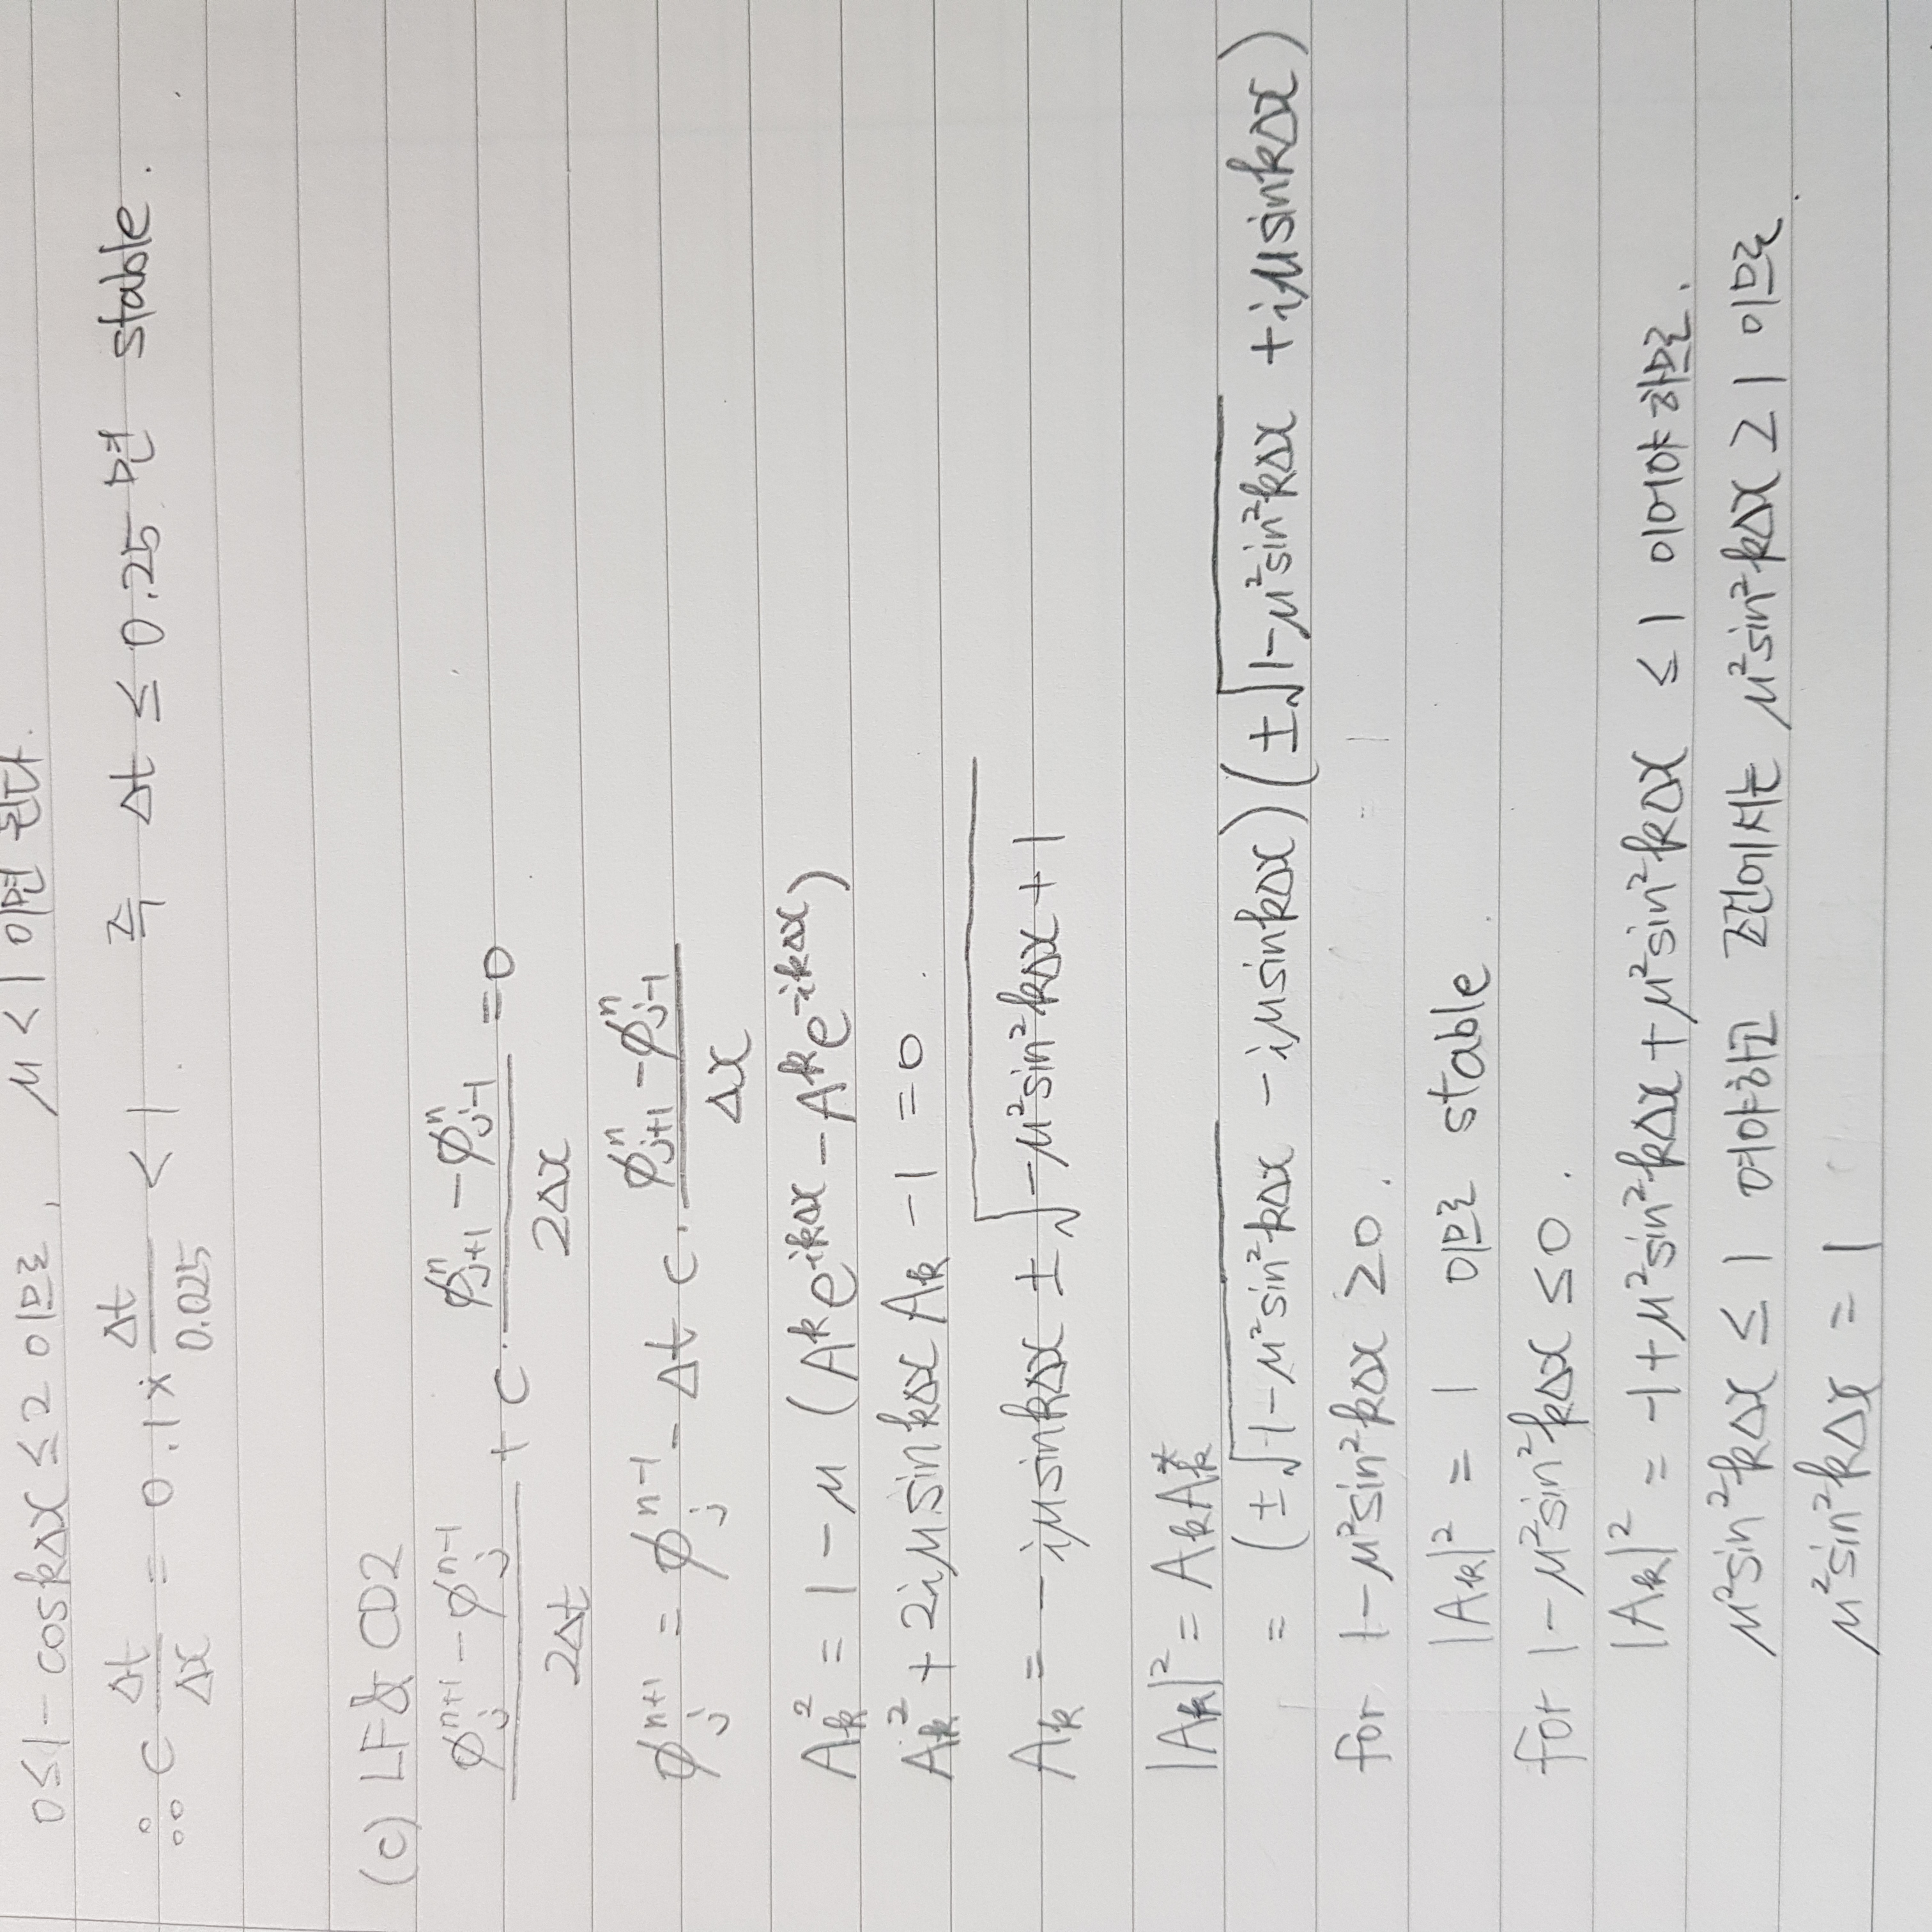 0 ≤ 1 - cos kΔx ≤ 2 이므로, μ < 1 이면 된다.
∴ c Δt/Δx = 0.1 × Δt/0.025 < 1. 즉 Δt ≤ 0.25 면 stable.
(c) LF & CD2
(φ_j^{n+1} - φ_j^{n-1})/(2Δt) + c · (φ_{j+1}^n - φ_{j-1}^n)/(2Δx) = 0
φ_j^{n+1} = φ_j^{n-1} - Δt c · (φ_{j+1}^n - φ_{j-1}^n)/Δx
A_k^2 = 1 - μ (A^k e^{ikΔx} - A^k e^{-ikΔx})
A_k^2 + 2iμ sin kΔx A_k - 1 = 0.
A_k = -iμ sin kΔx ± √(-μ² sin² kΔx + 1)
|A_k|² = A_k A_k^*
= (±√(1 - μ² sin² kΔx) - iμ sin kΔx)(±√(1 - μ² sin² kΔx) + iμ sin kΔx)
for 1 - μ² sin² kΔx ≥ 0.
|A_k|² = 1 이므로 stable.
for 1 - μ² sin² kΔx ≤ 0.
|A_k|² = -1 + μ² sin² kΔx + μ² sin² kΔx ≤ 1 이어야 하므로.
μ² sin² kΔx ≤ 1 여야하고 조건에서는 μ² sin² kΔx ≥ 1 이므로.
μ² sin² kΔx = 1